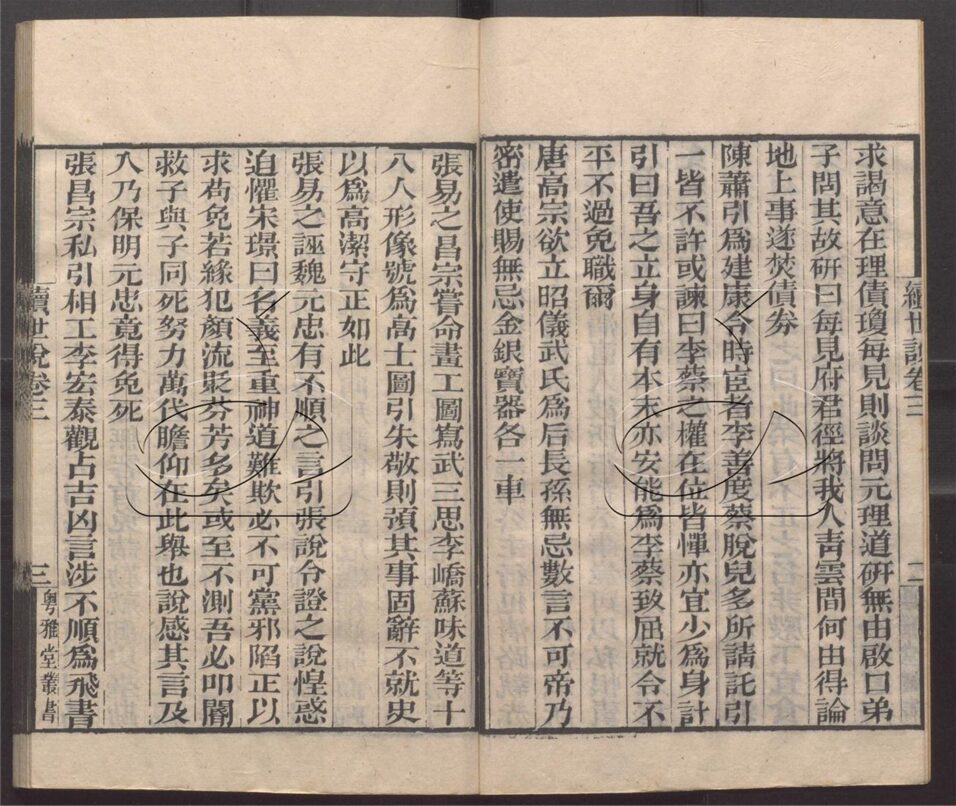 續世說卷三
求謁意在理債瓊每見則談問元理道硏無由啟口弟
子問其故硏曰每見府君徑將我人靑雲間何由得論
地上事遂焚債券
陳蕭引爲建康令時宦者李善度蔡脫兒多所請託引
一皆不許或諫曰李蔡之權在位皆憚亦宜少爲身計
引曰吾之立身自有本末亦安能爲李蔡致屈就令不
平不過免職爾
唐高宗欲立昭儀武氏爲后長孫無忌數言不可帝乃
密遣使賜無忌金銀寶器各一車
張易之昌宗嘗命畫工圖寫武三思李嶠蘇味道等十
八人形像號爲高士圖引朱敬則預其事固辭不就史
以爲高潔守正如此
張易之誣魏元忠有不順之言引張說令證之說惶惑
迫懼宋璟曰名義至重神道難欺必不可黨邪陷正以
求苟免若緣犯顏流貶芬芳多矣或至不測吾必叩閽
救子與子同死努力萬代瞻仰在此舉也說感其言及
入乃保明元忠竟得免死
張昌宗私引相工李宏泰觀占吉凶言涉不順爲飛書
續世說卷三
三
粵雅堂叢書